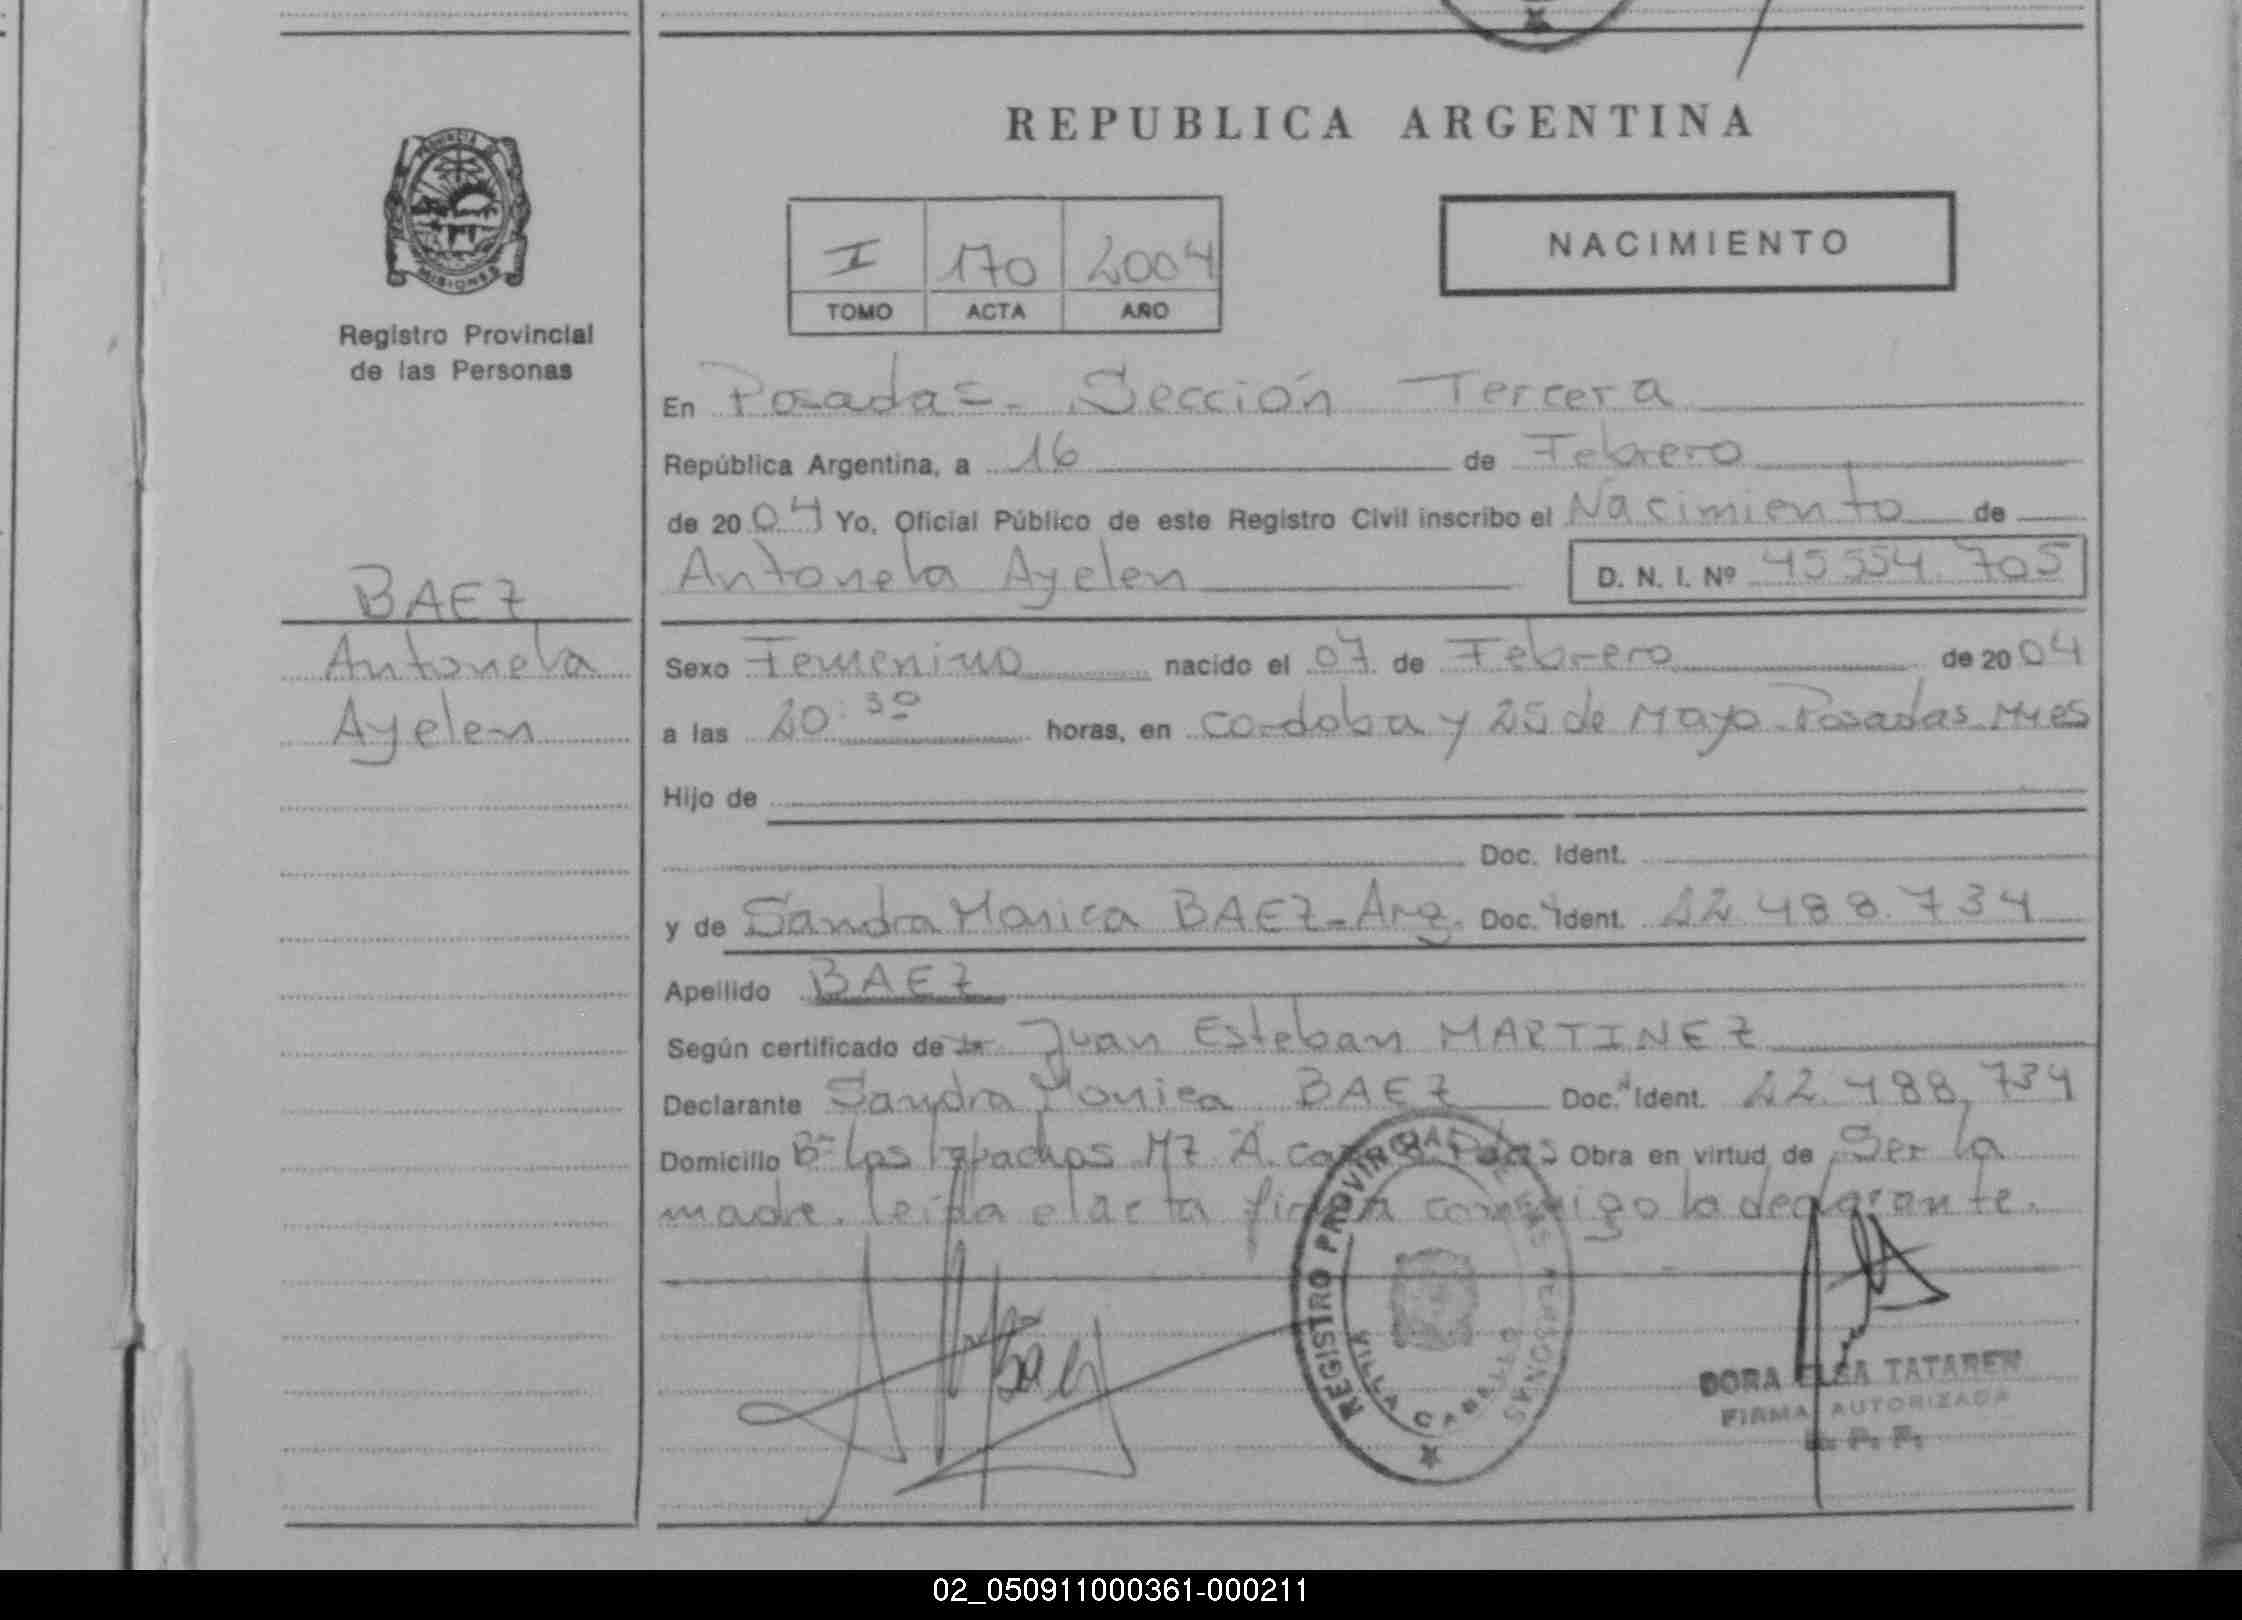 REPUBLICA ARGENTINA
PROVINCIA DE
MISIONES
Registro Provincial
de las Personas
I 170 2004
TOMO ACTA AÑO
NACIMIENTO
En Posadas - Sección Tercera
República Argentina, a 16 de Febrero
de 2004 Yo, Oficial Público de este Registro Civil inscribo el Nacimiento de
Antonela Ayelen D. N. I. Nº 45 554.705
BAEZ
Antonela
Ayelen
Sexo Femenino nacido el 07 de Febrero de 2004
a las 20:30 horas, en Cordoba y 25 de Mayo - Posadas Mnes
Hijo de
Doc. Ident.
y de Sandra Monica BAEZ - Arg. Doc. Ident. 22 488.734
Apellido BAEZ
Según certificado de Juan Esteban MARTINEZ
Declarante Sandra Monica BAEZ Doc. Ident. 22.488.734
Domicilio Bº Los lapachos Mz A. Pdas Obra en virtud de Ser la
madre. leida el acta firma conmigo la declarante.
Baez
REGISTRO PROVINCIAL DE LAS PERSONAS
VILLA CABELLO
DORA ELSA TATAREN
FIRMA AUTORIZADA
R. P. P.
02_050911000361-000211